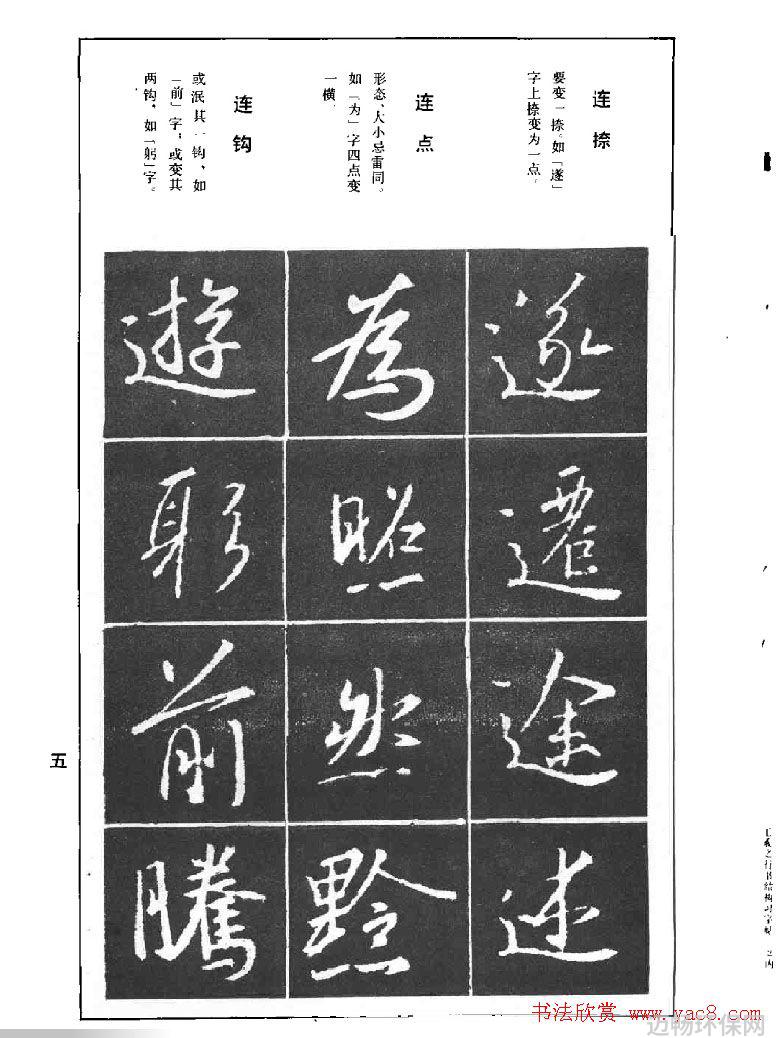 连捺
要变一捺。如「遂」
字上捺变为一点。
连点
形态、大小忌雷同。
如「为」字四点变
一横。
连钩
或泯其一钩、如
「前」字；或变其
两钩，如「躬」字。
遂
遷
途
述
為
照
然
黔
遊
躬
前
騰
五
书法欣赏 www.yac8.com
迈畅环保网